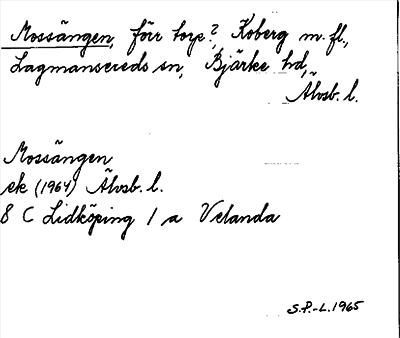 Mossängen, förr torp?, Koberg m. fl.,
Lagmansereds sn, Bjärke hd,
Älvsb. l.
Mossängen
ek (1964) Älvsb. l.
8 C Lidköping 1 a Velanda
S.P.-L. 1965